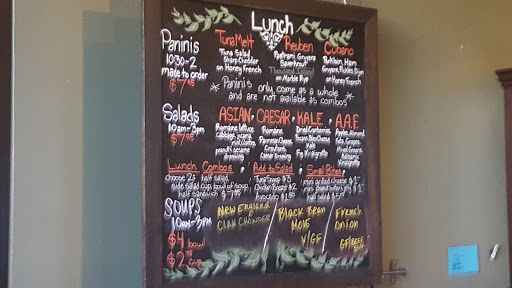 Lunch
Paninis
10:30-2
made to order
$7.95
Tuna Melt
Tuna Salad
Sharp Cheddar
on Honey French
Reuben
Pastrami, Gruyere
Sauerkraut
Thousand Island
on Marble Rye
Cubano
Pork Loin, Ham
Gruyere, Pickles, Dijon
on Honey French
* Paninis only come as a whole *
and are not available as combos
Salads
10am-3pm
$7.95
ASIAN • CAESAR • KALE • A.A.F.
Romaine lettuce
Cabbage
dressing
Romaine
Parmesan Cheese
Croutons
Caesar Dressing
Dried Cranberries
Pecans, Bleu Cheese
Kale
Fig Vinaigrette
Apples, Almond
Feta, Grapes
Mixed Greens
Balsamic
Vinaigrette
Lunch Combos
choose 2: half salad
side salad, cup bowl of soup,
half sandwich
Add to Salad
Tuna Scoop $3
Chicken Breast $2
Avocado
Small Bites
mini grilled cheese
half salad
SOUPS
10am-3pm
$4 bowl
$2.75 cup
New England
Clam Chowder
Black Bean
Mole
V/GF
French
Onion